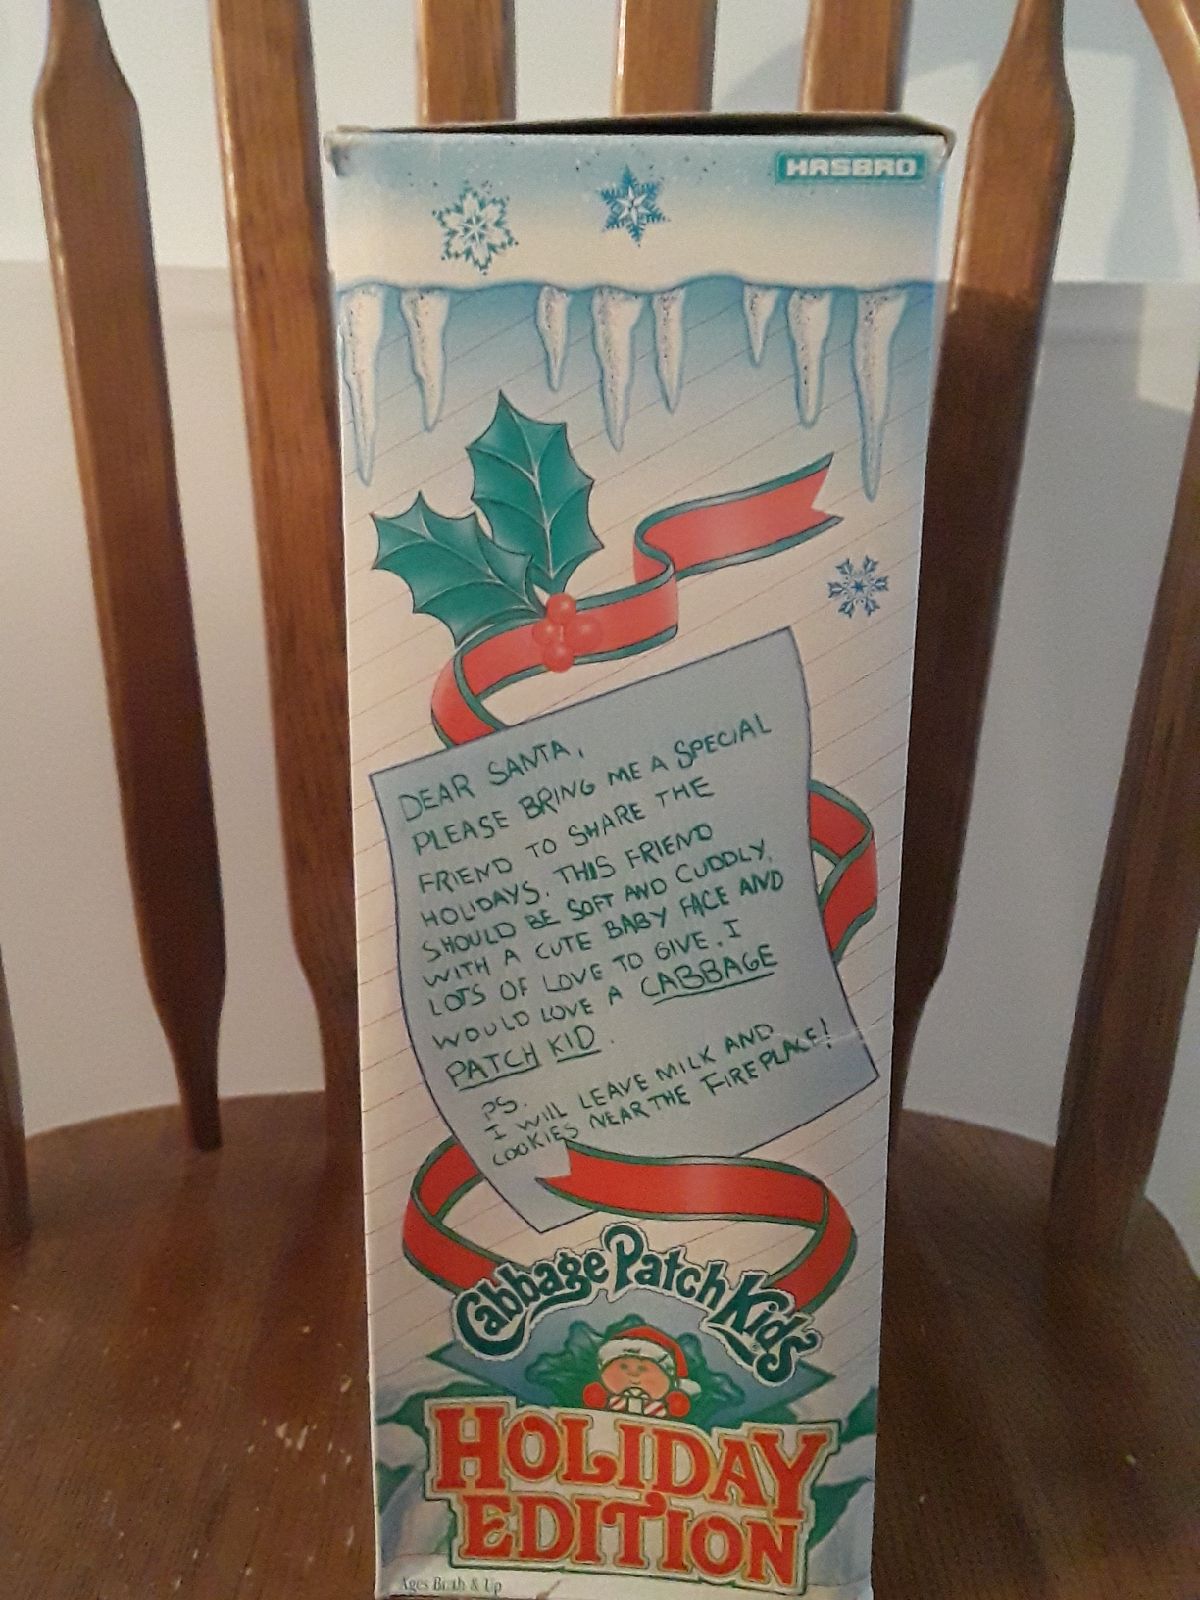 HASBRO
DEAR SANTA,
PLEASE BRING ME A SPECIAL
FRIEND TO SHARE THE
HOLIDAYS. THIS FRIEND
SHOULD BE SOFT AND CUDDLY,
WITH A CUTE BABY FACE AND
LOTS OF LOVE TO GIVE. I
WOULD LOVE A CABBAGE
PATCH KID.
PS.
I WILL LEAVE MILK AND
COOKIES NEAR THE FIREPLACE!
Cabbage Patch Kids®
HOLIDAY
EDITION
Ages Birth & Up